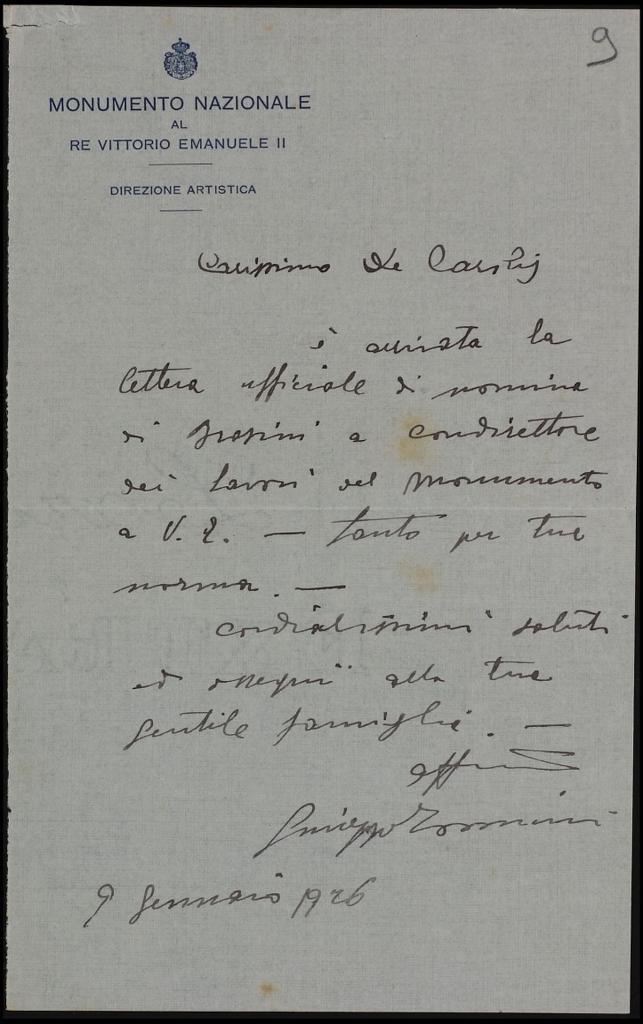 9
MONUMENTO NAZIONALE
AL
RE VITTORIO EMANUELE II
DIREZIONE ARTISTICA
Carissimo De Carolis
è arrivata la
lettera ufficiale di nomina
di a condirettore
dei lavori del Monumento
a V. E. — tanto per tua
norma. —
cordialissimi saluti
ed ossequi alla tua
gentile famiglia. —
aff
Giuseppe
9 Gennaio 1926